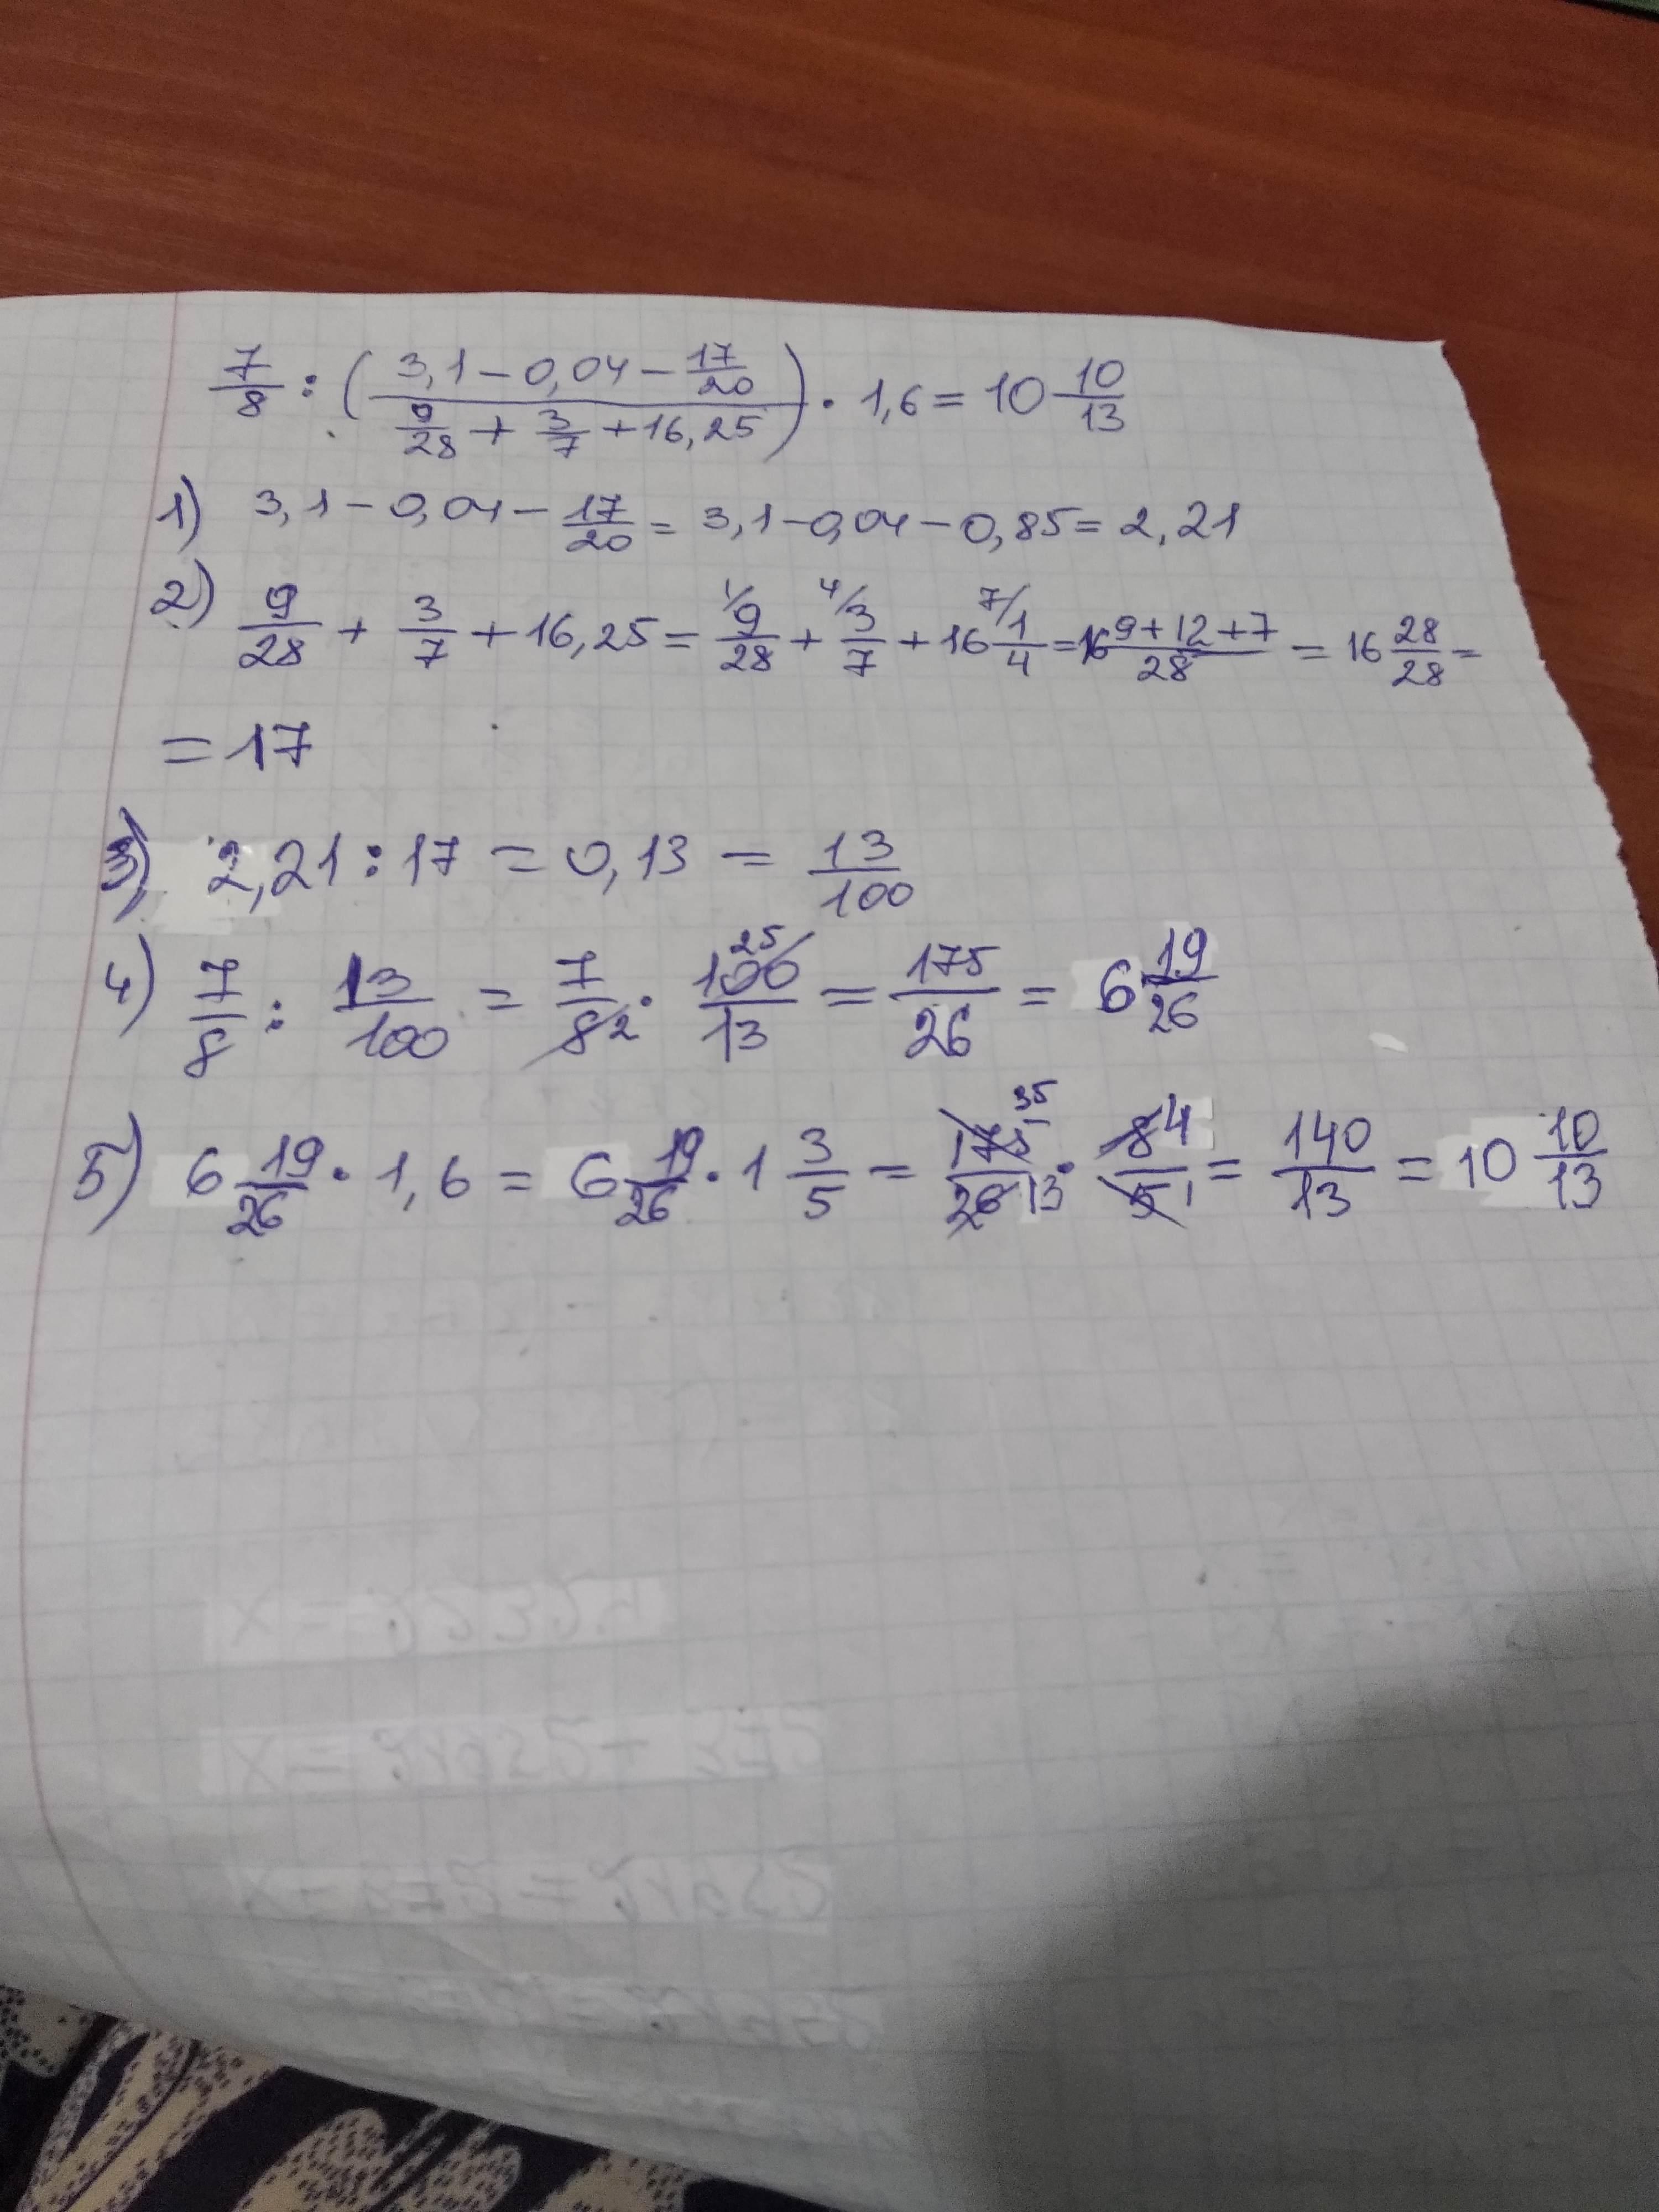 7/8 : ((3,1 - 0,04 - 17/20)/(9/28 + 3/7 + 16,25)) · 1,6 = 10 10/13
1) 3,1 - 0,04 - 17/20 = 3,1 - 0,04 - 0,85 = 2,21
2) 9/28 + 3/7 + 16,25 = 9/28 + 3/7 + 16 1/4 = 16 (9+12+7)/28 = 16 28/28 =
= 17
3) 2,21 : 17 = 0,13 = 13/100
4) 7/8 : 13/100 = 7/8 · 100/13 = 175/26 = 6 19/26
5) 6 19/26 · 1,6 = 6 19/26 · 1 3/5 = 175/26 · 8/5 = 140/13 = 10 10/13